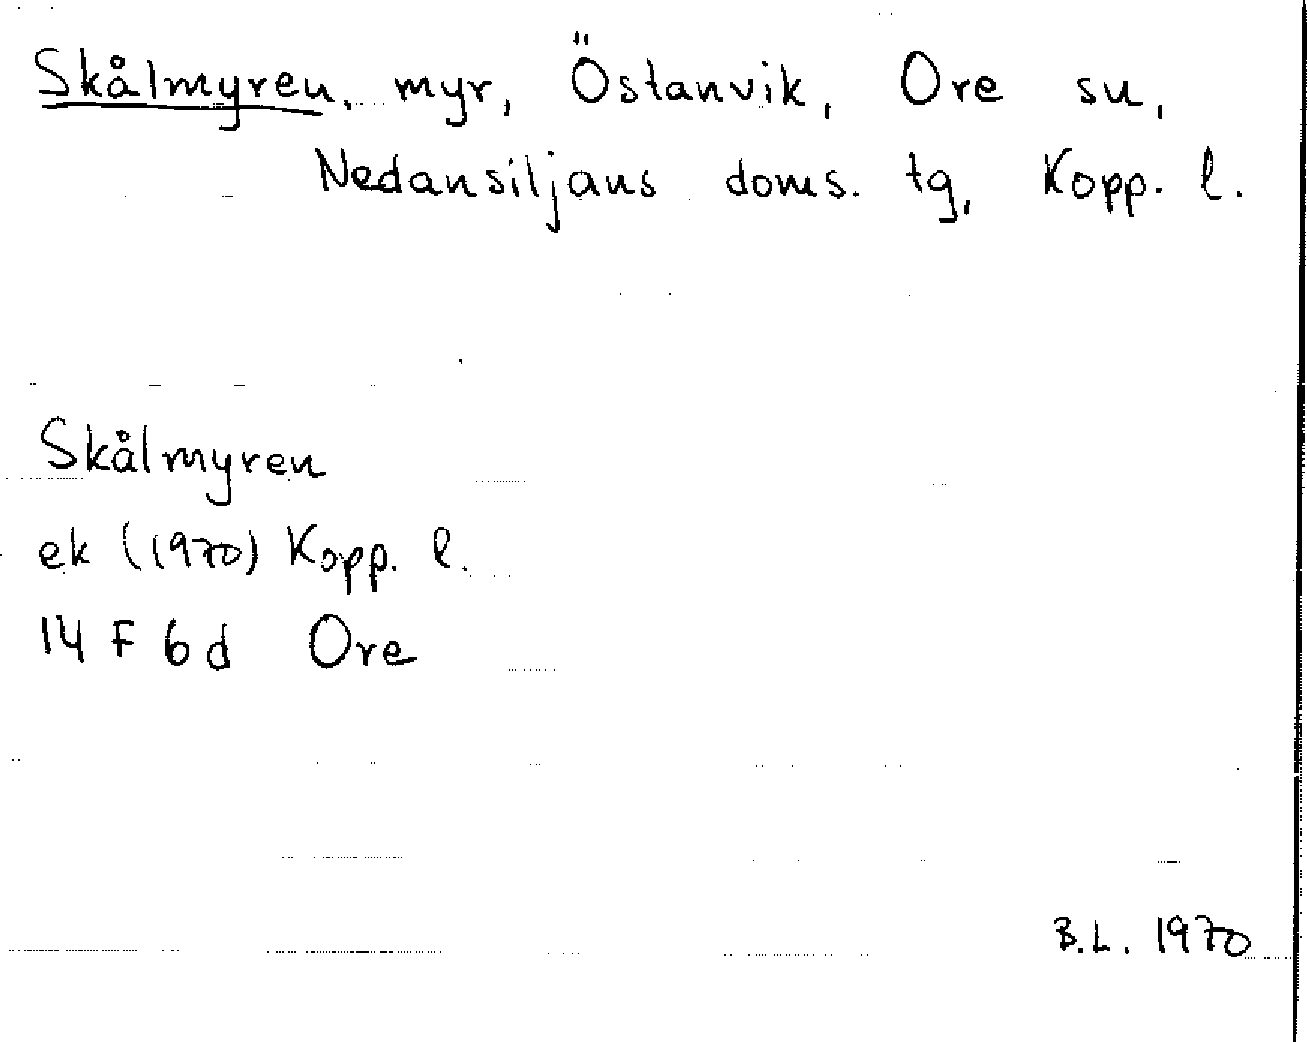 Skålmyren, myr, Östanvik, Ore sn,
Nedansiljans doms. tg, Kopp. l.
Skålmyren
ek (1970) Kopp. l.
14 F 6 d Ore
B.L. 1970